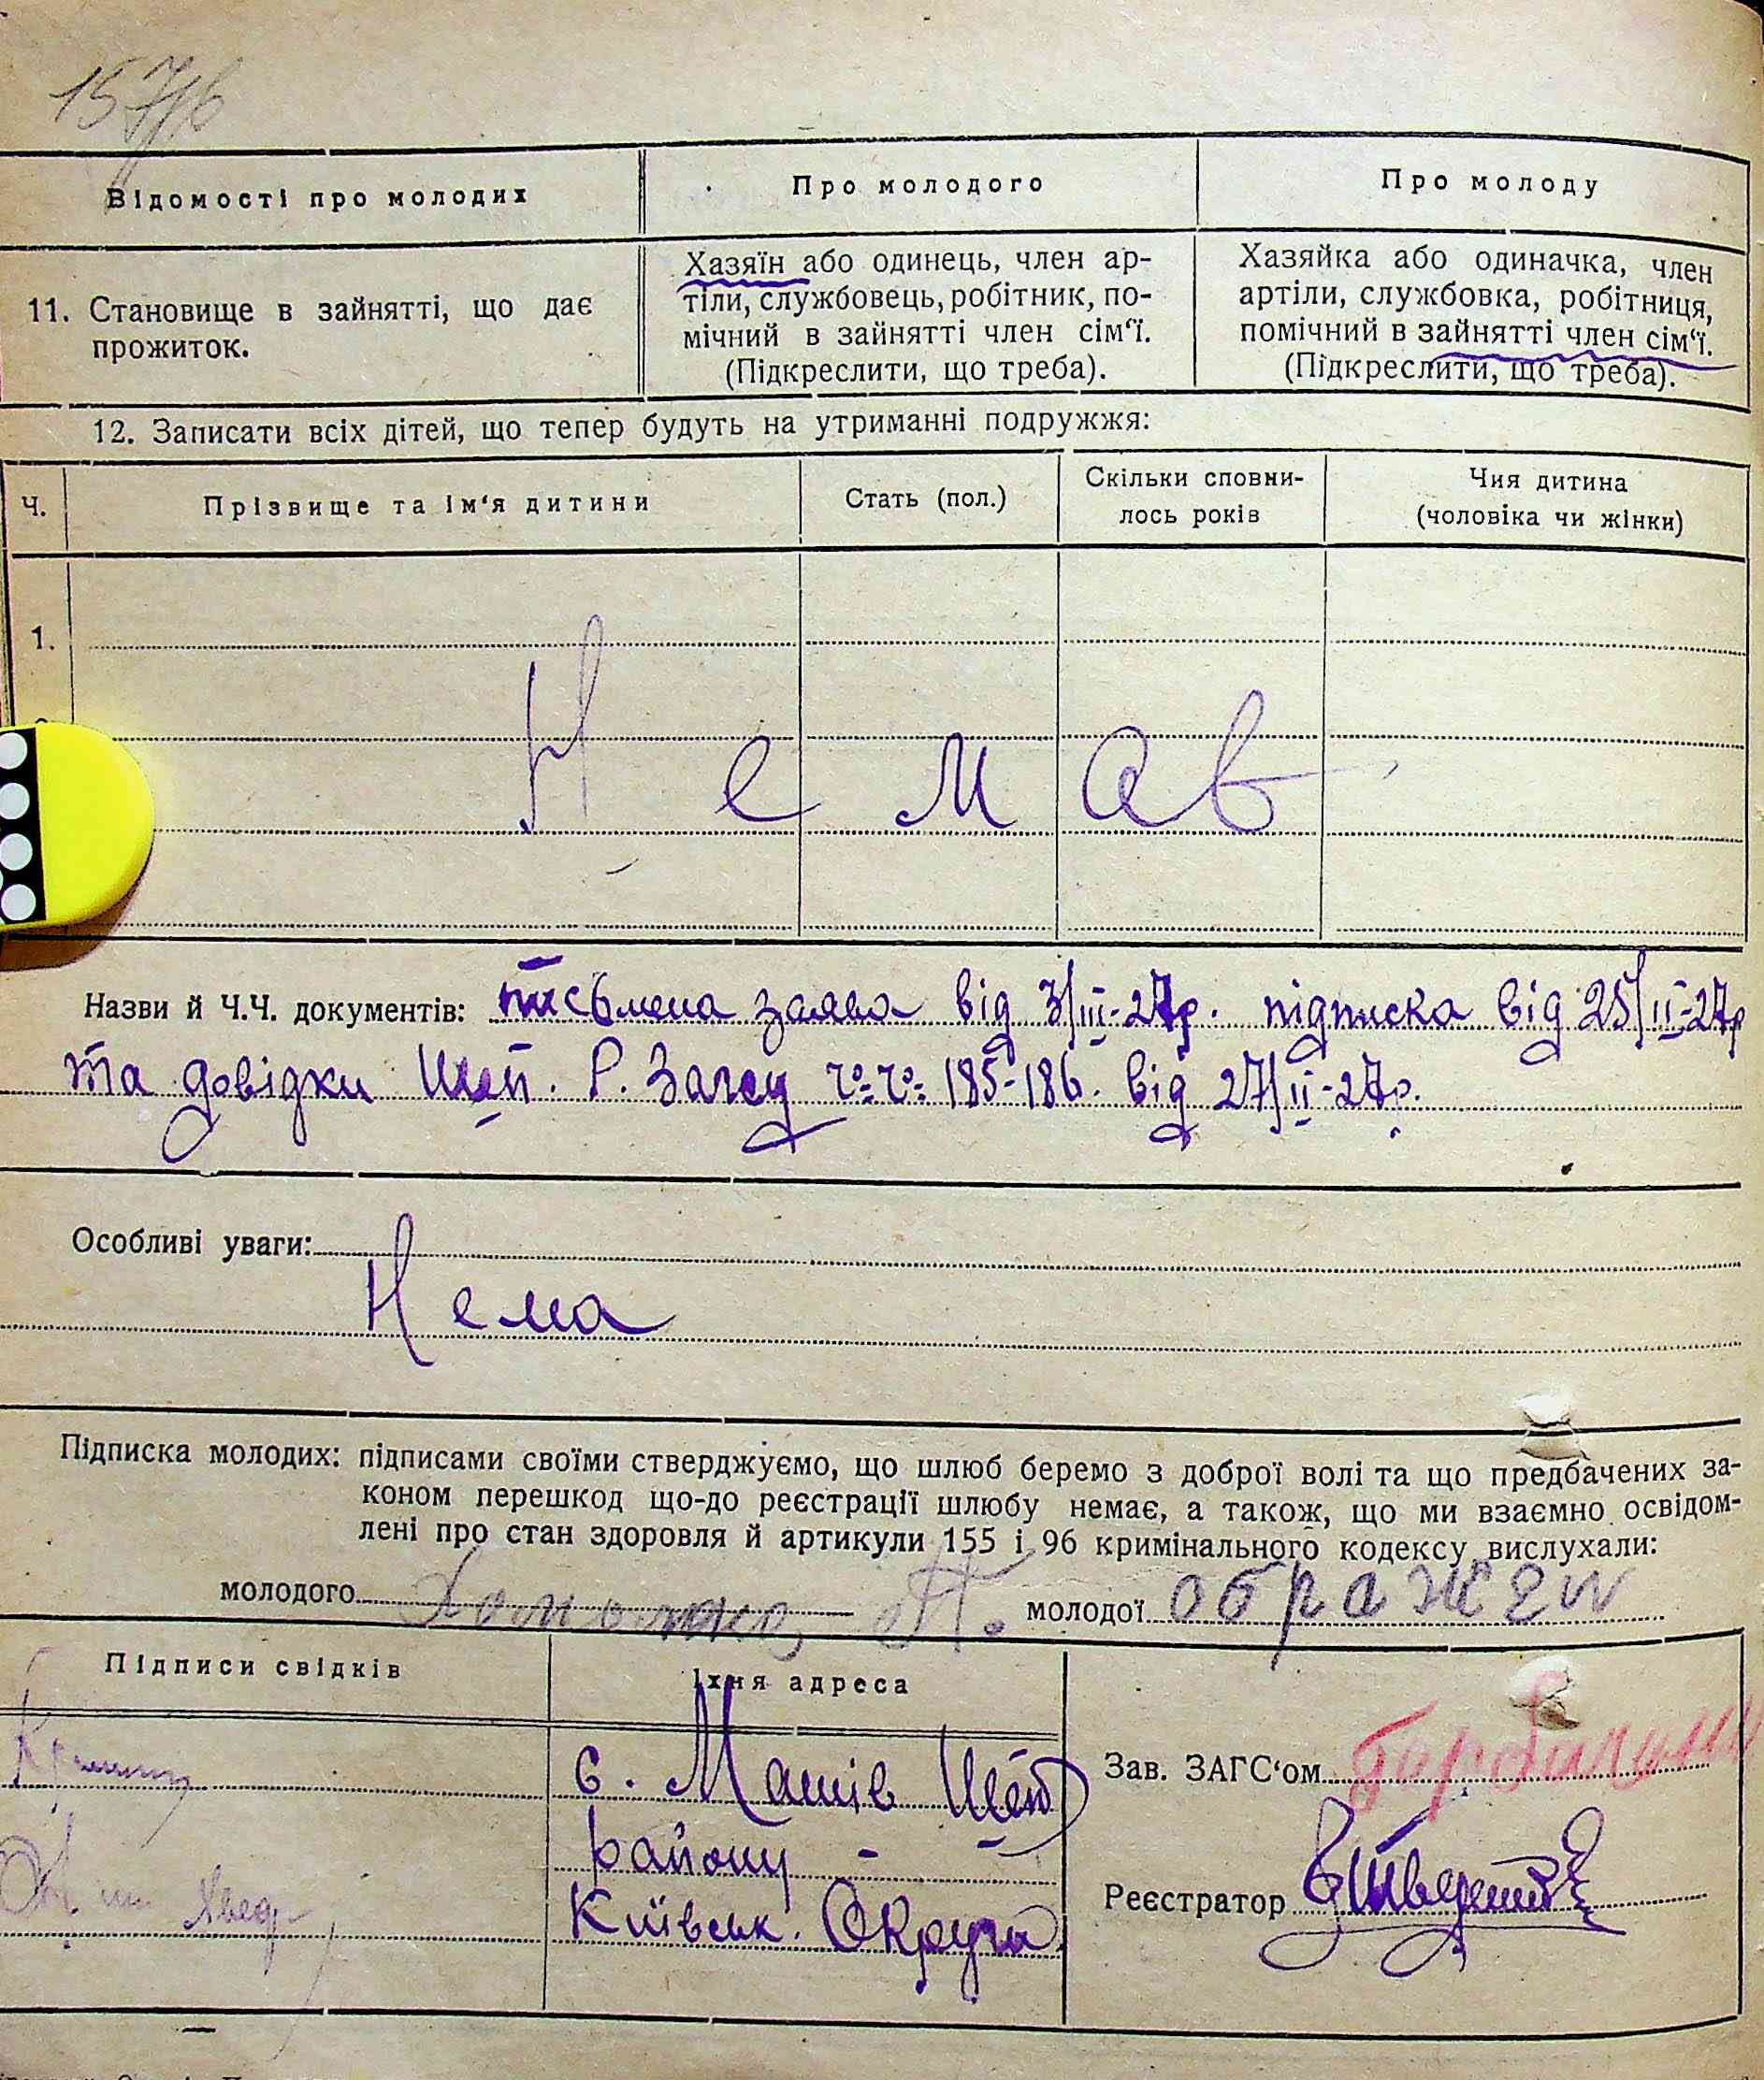 157/6
Відомості про молодих
Про молодого
Про молоду
11. Становище в зайнятті, що дає
прожиток.
Хазяїн або одинець, член ар-
тіли, службовець, робітник, по-
мічний в зайнятті член сім‘ї.
(Підкреслити, що треба).
Хазяйка або одиначка, член
артіли, службовка, робітниця,
помічний в зайнятті член сім‘ї.
(Підкреслити, що треба).
12. Записати всіх дітей, що тепер будуть на утриманні подружжя:
Ч.
Прізвище та ім‘я дитини
Стать (пол.)
Скільки сповни-
лось років
Чия дитина
(чоловіка чи жінки)
1.
Немає
Назви й Ч.Ч. документів: письмена заява від 3/III-27р. підписка від 25/II-27р
та довідки Шеп. Р. Загсу ч.ч. 185-186. від 27/II-27р.
Особливі уваги:
Нема
Підписка молодих: підписами своїми стверджуємо, що шлюб беремо з доброї волі та що предбачених за-
коном перешкод що-до реєстрації шлюбу немає, а також, що ми взаємно освідом-
лені про стан здоров‘я й артикули 155 і 96 кримінального кодексу вислухали:
молодого
молодої ображей
Підписи свідків
Їхня адреса
с. Мошів Шеп
району -
Київськ. Округи
Зав. ЗАГС‘ом
Реєстратор